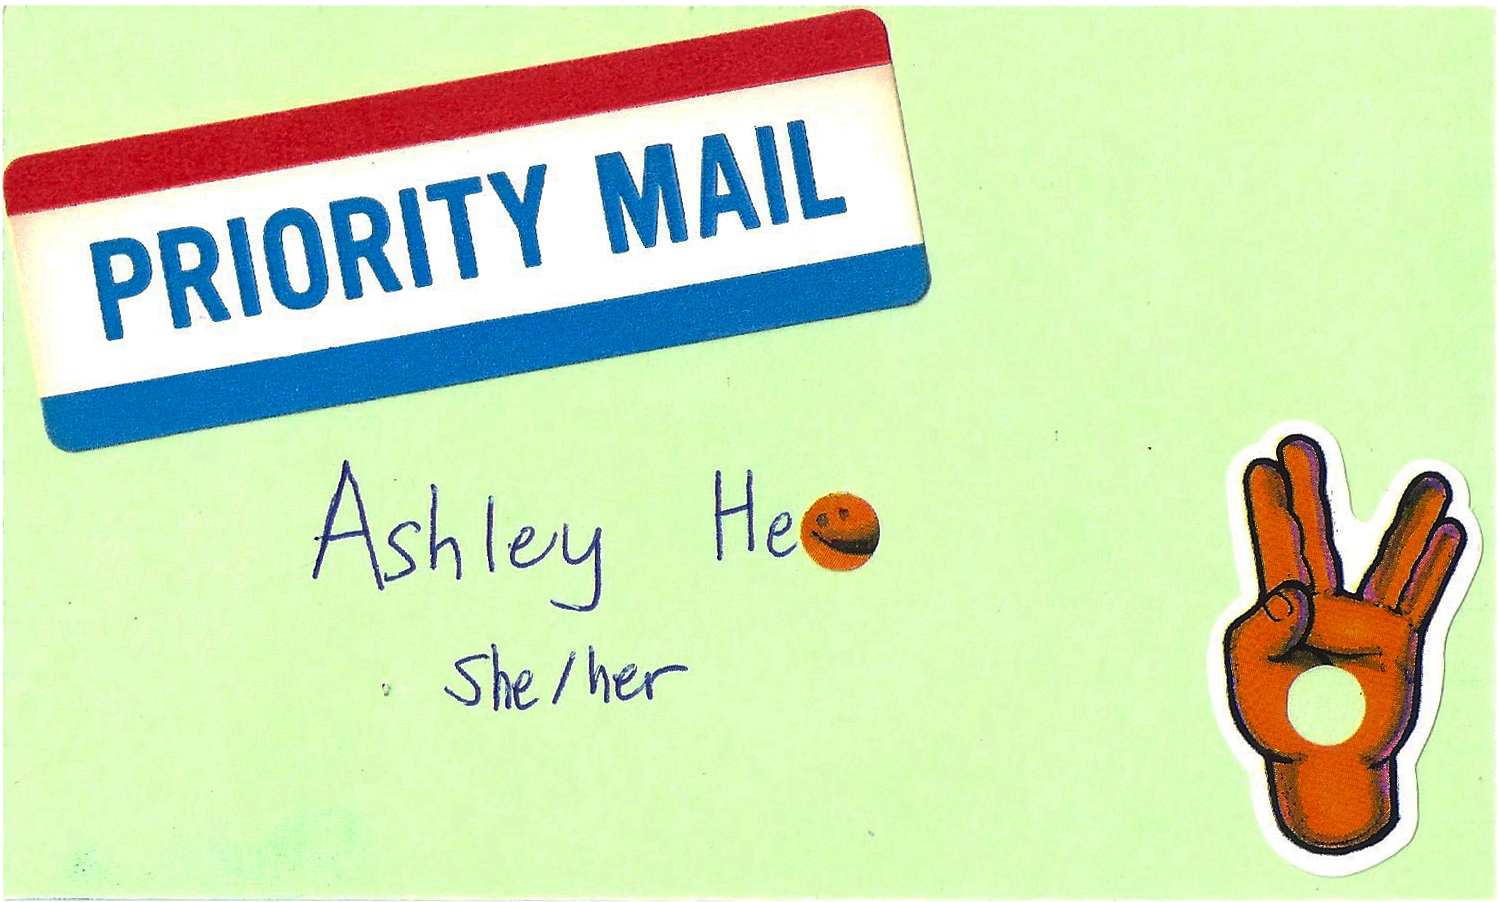 PRIORITY MAIL
Ashley He
she/her